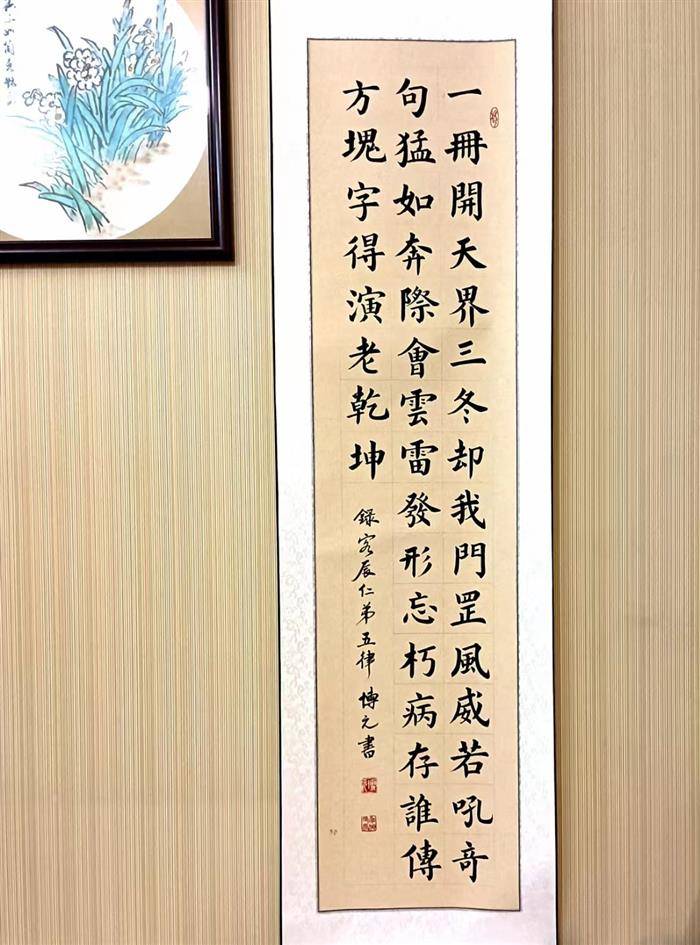 一冊開天界三冬却我門罡風威若吼奇
句猛如奔際會雲雷發形忘朽病存誰傳
方塊字得演老乾坤
錄客辰仁弟五律 博元書